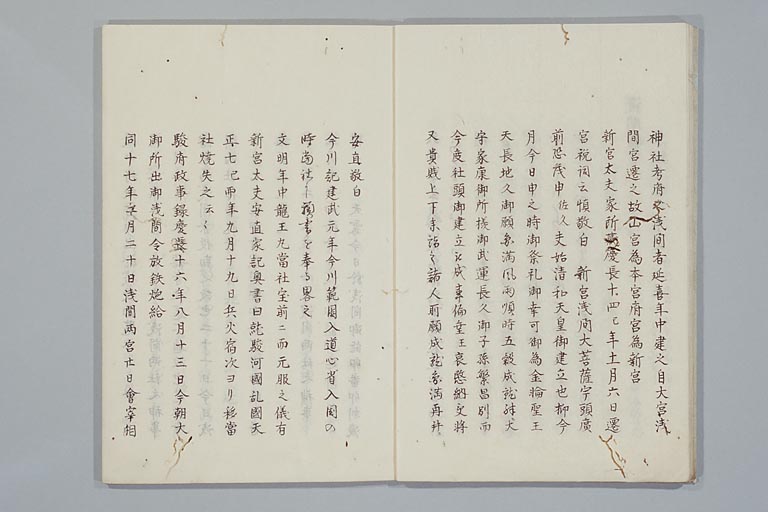 神社考府中浅間者延喜年中建之自大宮浅
間宮遷之故山宮為本宮府宮為新宮
新宮太夫家所蔵慶長十四己年十一月六日遷
宮祝詞云慎敬白　新宮浅間大菩薩宇頭廣
前恐茂申佐久夫始清和天皇御建立也抑今
月今日申之時御祭礼御幸可御為金輪聖王
天長地久御願円満風雨順時五穀成就殊大
家康御所様御武運長久御子孫繁昌別而
今度社頭御建立 成事偏聖王哀愍納受将
又貴賤上下 詣之諸人所願成就円満再拝
安直敬白
今川記建武元年今川範国入道心省入国の
時當社に願書を奉る畧之
文明年中龍王丸當社宝前ニ而元服之儀有
新宮太夫安直家記奥書曰就駿河國乱國天
正七 年九月十九日兵火宿次ヨリ移當
社焼失之云々
駿府政事録慶長十六年八月十三日今朝大
御所出御浅間令放鉄炮給
同十七年 月二十日浅間両宮廿日會宰相